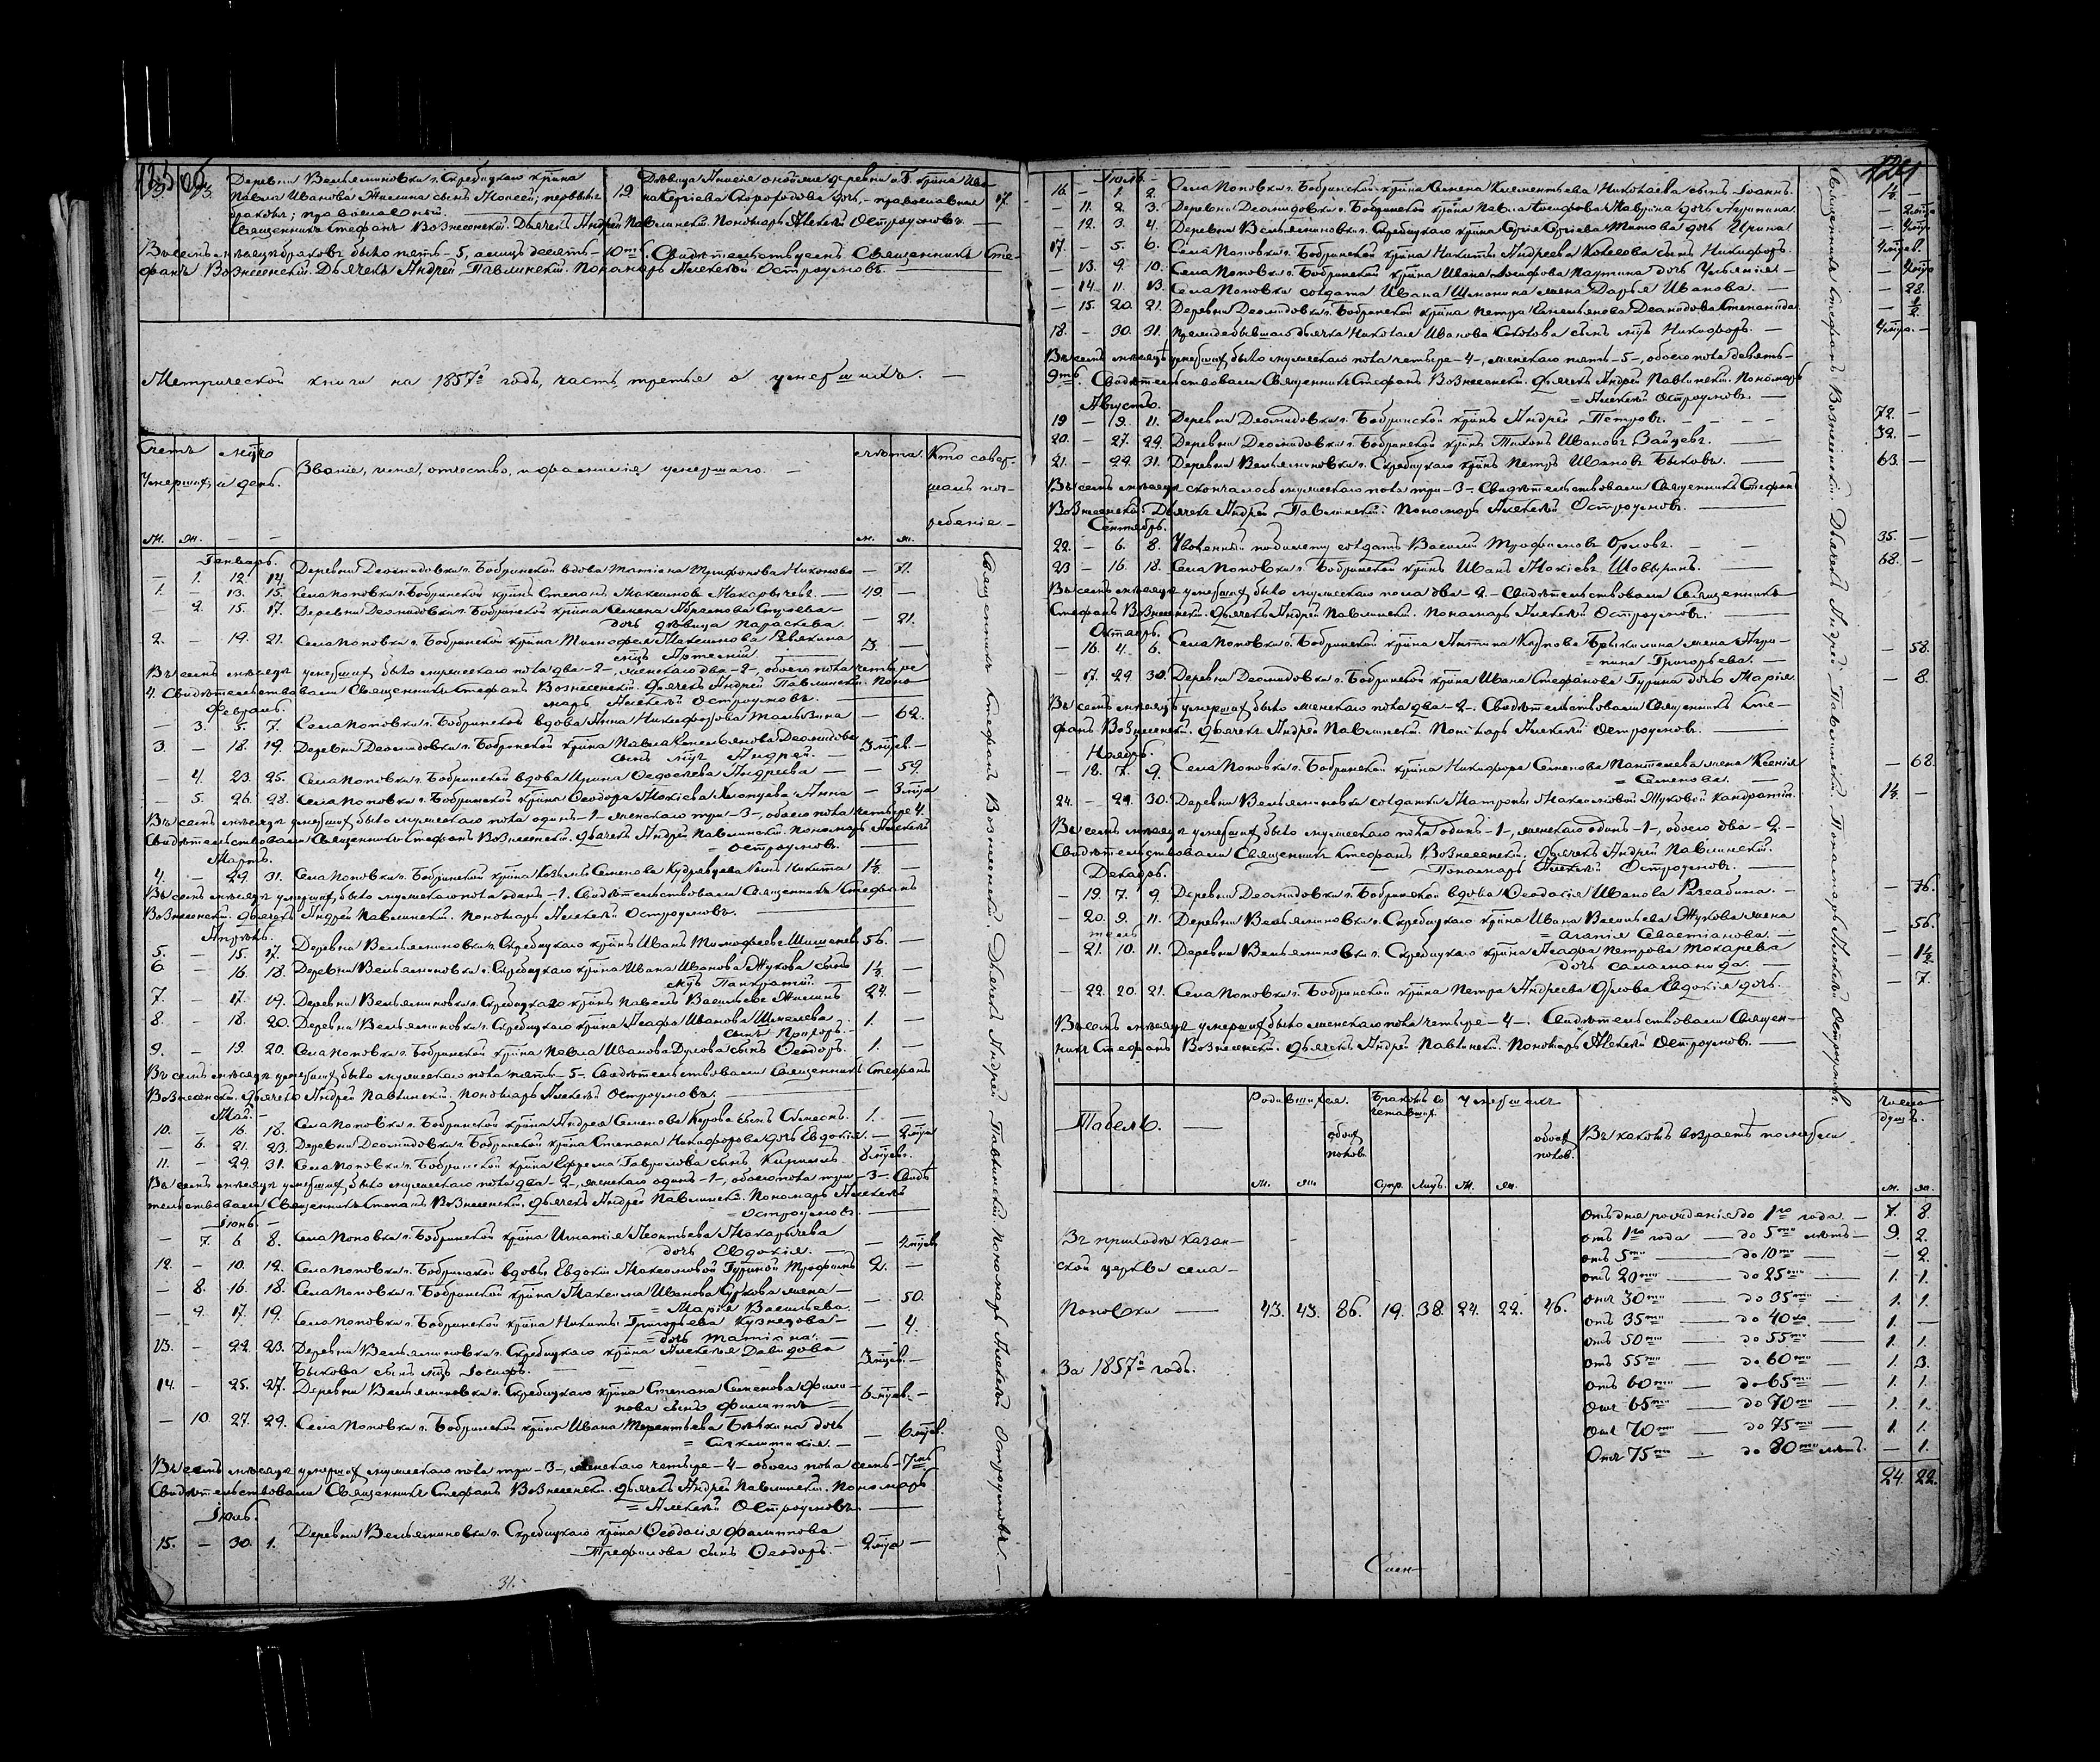 Деревни Вельяминовки г. Скребицкаго крѣпна
Павла Иванова Жилина сынъ Моисей; первымъ
бракомъ; православный.
19
Дѣвица Анисія оной же деревни и Г. крѣпна Ива-
на Сергіева Скорододова дочь, православная
17
Священникъ Стефанъ Вознесенскій. Дьячекъ Андрей Павлинскій. Пономарь Алексѣй Остроумовъ.
Въ семъ мѣсяцѣ браковъ было пять - 5, а лицъ десять - 10ть. Свидѣтельствуемъ Священникъ Сте-
фанъ Вознесенскій. Дьячекъ Андрей Павлинскій. Пономарь Алексѣй Остроумовъ.
Метрической книги на 1857й годъ, часть третья о умершихъ.
Счетъ умершихъ
мц̃ъ и день.
Званіе, имя, отчество, и фамилія умершаго.
лѣта.
Кто совер-
шалъ пог-
ребеніе
м. ж. м. ж.
Генварь.
- 1. 12. 14. Деревни Деомидовки г. Бобринской вдова Татіана Трифонова Никонова - 71.
1. - 13. 15. Села Поповки г. Бобринской крѣпнъ Степанъ Максимовъ Макарычевъ. 49. -
- 2. 15. 17. Деревни Деомидовки г. Бобринской крѣпна Семена Абрамова
дочь дѣвица Параскева. - 21.
2. - 19. 21. Села Поповки г. Бобринской крѣпна Тимофея Максимова
сынъ Артемій 3. -
Въ семъ мѣсяцѣ умершихъ было мужескаго пола два - 2 -, женскаго два - 2 -, обоего пола четыре
4. Свидѣтельствовали Священникъ Стефанъ Вознесенскій. Дьячекъ Андрей Павлинскій. Поно-
марь Алексѣй Остроумовъ.
Февраль.
- 3. 5. 7. Села Поповки г. Бобринской вдова Анна Никифорова - 62.
3. - 18. 19. Деревни Деомидовки г. Бобринской крѣпна Павла Емельянова Деомидова
сынъ мл̃ц Андрей. 3 мц̃ев. -
- 4. 23. 25. Села Поповки г. Бобринской вдова Ирина Ѳедосѣева Андреева - 59.
- 5. 26. 28. Села Поповки г. Бобринской крѣпна Ѳеодора Мокіева Анна - 3 мц̃а
Въ семъ мѣсяцѣ умершихъ было мужескаго пола одинъ - 1 - женскаго три - 3 -, обоего пола четыре 4.
Свидѣтельствовали Священникъ Стефанъ Вознесенскій. Дьячекъ Андрей Павлинскій. Пономарь Алексѣй
= Остроумовъ.
Мартъ.
4. - 29. 31. Села Поповки г. Бобринской крѣпна Козьмы Семенова Кудрявцева сынъ Никита 1½ -
Въ семъ мѣсяцѣ умершихъ было мужескаго пола одинъ - 1. Свидѣтельствовали Священникъ Стефанъ
Вознесенскій. Дьячекъ Андрей Павлинскій. Пономарь Алексѣй Остроумовъ.
Апрѣль.
5. - 15. 17. Деревни Вельяминовки г. Скребицкаго крѣпнъ Иванъ Тимофеевъ 56. -
6 - 16. 18. Деревни Вельяминовки г. Скребицкаго крѣпна Ивана Иванова Жукова сынъ
мл̃ц Панкратій. 1½ -
7. - 17. 19. Деревни Вельяминовки г. Скребицкаго крѣпнъ Павелъ Васильевъ Жилинъ 24. -
8. - 18. 20. Деревни Вельяминовки г. Скребицкаго крѣпна Агафа Иванова Шмелева
сынъ Прохоръ. 1. -
9. - 19. 20. Села Поповки г. Бобринской крѣпна Павла Иванова сынъ Ѳеодоръ. 1. -
Въ семъ мѣсяцѣ умершихъ было мужескаго пола пять - 5 -. Свидѣтельствовали Священникъ Стефанъ
Вознесенскій. Дьячекъ Андрей Павлинскій. Пономарь Алексѣй Остроумовъ.
Май.
10. - 16. 18. Села Поповки г. Бобринской крѣпна Андрея Семенова сынъ Симеонъ. 1. -
- 6. 21. 23. Деревни Деомидовки г. Бобринской крѣпна Степана Никифорова дочь Евдокія. - 2 мц̃а
11. - 29. 31. Села Поповки г. Бобринской крѣпна Ефрема Гаврилова сынъ Кириллъ. 8 мц̃ев. -
Въ семъ мѣсяцѣ умершихъ было мужескаго пола два - 2 -, женскаго одинъ - 1 -, обоего пола три - 3 - Свидѣ
тельствовали Священникъ Стефанъ Вознесенскій. Дьячекъ Андрей Павлинскій. Пономарь Алексѣй
= Остроумовъ.
Іюнь.
- 7. 6 8. Села Поповки г. Бобринской крѣпна Игнатія Леонтьева Макарычева
дочь Евдокія. - 4 мц̃ев
12. - 10. 12. Села Поповки г. Бобринской вдовы Евдокіи Максимовой Гуриной Трофимъ 2. -
- 8. 16. 18. Села Поповки г. Бобринской крѣпна Максима Иванова Суркова жена
= Марія Васильева. - 50.
- 9. 17. 19. Села Поповки г. Бобринской крѣпна Никиты Григорьева Кузнецова
= дочь Татіана. - 4.
13. - 22. 23. Деревни Вельяминовки г. Скребицкаго крѣпна Алексѣя Давидова
Быкова сынъ мл̃ц Іосифъ. 3 мц̃ев. -
14. - 25. 27. Деревни Вельяминовки г. Скребицкаго крѣпна Степана Семенова Фили-
пова сынъ Филиппъ 6 мц̃ев. -
- 10. 27. 29. Села Поповки г. Бобринской крѣпна Ивана Терентьева дочь
= Синклитикія. - 6 мц̃ев.
Въ семъ мѣсяцѣ умершихъ мужескаго пола три - 3 -, женскаго четыре - 4 - обоего пола семь - 7мь
Свидѣтельствовали Священникъ Стефанъ Вознесенскій. Дьячекъ Андрей Павлинскій. Пономарь
= Алексѣй Остроумовъ.
Іюль.
15. - 30. 1. Деревни Вельяминовки г. Скребицкаго крѣпна Ѳеодосія Филиппова
Трефилова сынъ Ѳеодоръ. 2 мц̃а -
31.
Священникъ Стефанъ Вознесенскій. Дьячекъ Андрей Павлинскій. Пономарь Алексѣй Остроумовъ.
Іюль.
16. - 2. Села Поповки г. Бобринской крѣпна Семена Клементьева Николаева сынъ Іоаннъ. 1½ -
- 11. 2. 3. Деревни Деомидовки г. Бобринской крѣпна Павла дочь - 2 мц̃а
- 12. 3. 4. Деревни Вельяминовки г. Скребицкаго крѣпна Сергія Сергіева Титова дочь Ирина -
17. - 5. 6. Села Поповки г. Бобринской крѣпна Никиты Андреева сынъ Никифоръ. 4 мц̃ев. -
- 13. 9. 10. Села Поповки г. Бобринской крѣпна Ивана дочь Ульянія -
- 14. 11. 13. Села Поповки солдата Ивана жена Дарья Иванова. - 28.
- 15. 20. 21. Деревни Деомидовки г. Бобринской крѣпна Петра Емельянова Деомидова Степанида - ½
18. - 30. 31. Преждебывшаго дьячка Николая Иванова сынъ мл̃ц Никифоръ. 4 мц̃а. -
Въ семъ мѣсяцѣ умершихъ было мужескаго пола четыре - 4 -, женскаго пять - 5 -, обоего пола девять -
9ть. Свидѣтельствовали Священникъ Стефанъ Вознесенскій. Дьячекъ Андрей Павлинскій. Пономарь
= Алексѣй Остроумовъ.
Августъ.
19 - 9. 11. Деревни Деомидовки г. Бобринской крѣпнъ Андрей Петровъ. 72. -
20. - 27. 29. Деревни Деомидовки г. Бобринской крѣпнъ Тихонъ Ивановъ Зайцевъ. 32. -
21. - 29. 31. Деревни Вельяминовки г. Скребицкаго крѣпнъ Петръ Ивановъ Быковъ. 63. -
Въ семъ мѣсяцѣ скончалось мужескаго пола три - 3 -. Свидѣтельствовали Священникъ Стефанъ
Вознесенскій. Дьячекъ Андрей Павлинскій. Пономарь Алексѣй Остроумовъ.
Сентябрь.
22. - 6. 8. Уволенный по билету солдатъ Василій Трофимовъ Орловъ. 35. -
23 - 16. 18. Села Поповки г. Бобринской крѣпнъ Иванъ Мокіевъ 68. -
Въ семъ мѣсяцѣ умершихъ было мужескаго пола два - 2 - Свидѣтельствовали Священникъ
Стефанъ Вознесенскій. Дьячекъ Андрей Павлинскій. Пономарь Алексѣй Остроумовъ.
Октябрь.
- 16. 4. 6. Села Поповки г. Бобринской крѣпна Антипа Карпова жена Агри-
= пина Григорьева. - 58.
- 17. 29. 30. Деревни Деомидовки г. Бобринской крѣпна Ивана Стефанова Гурина дочь Марія. - 8.
Въ семъ мѣсяцѣ умершихъ было женскаго пола два - 2 -. Свидѣтельствовали Священникъ Сте-
фанъ Вознесенскій. Дьячекъ Андрей Павлинскій. Пономарь Алексѣй Остроумовъ.
Ноябрь.
- 18. 7. 9. Села Поповки г. Бобринской крѣпна Никифора Семенова Пантелеева жена Ксенія
= Семенова. - 68.
24. - 29. 30. Деревни Вельяминовки солдатки Матроны Максимовой Жуковой Кандратій. 1½ -
Въ семъ мѣсяцѣ умершихъ было мужескаго пола одинъ - 1 -, женскаго одинъ - 1 -, обоего два - 2 -
Свидѣтельствовали Священникъ Стефанъ Вознесенскій. Дьячекъ Андрей Павлинскій.
Пономарь Алексѣй Остроумовъ.
Декабрь.
- 19. 7. 9. Деревни Деомидовки г. Бобринской вдова Ѳеодосія Иванова - 76.
- 20. 9. 11. Деревни Вельяминовки г. Скребицкаго крѣпна Ивана Васильева Жукова жена
= Агапія Севастіанова. - 56.
- 21. 10. 11. Деревни Вельяминовки г. Скребицкаго крѣпна Агафа Петрова Токарева
дочь Саламанида. - 1½
- 22. 20. 21. Села Поповки г. Бобринской крѣпна Петра Андреева Орлова Евдокія дочь. - 7.
Въ семъ мѣсяцѣ умершихъ было женскаго пола четыре - 4 -. Свидѣтельствовали Священ-
никъ Стефанъ Вознесенскій. Дьячекъ Андрей Павлинскій. Пономарь Алексѣй Остроумовъ.
Священникъ Стефанъ Вознесенскій. Дьячекъ Андрей Павлинскій. Пономарь Алексѣй Остроумовъ.
Табель.
Родившихся.
Браковъ со
четавших.
Умершихъ
Въ какомъ возрастѣ померли.
Число
душъ.
м. ж. обоих половъ. супр. лицъ. м. ж. обоих половъ. м. ж.
Въ приходѣ Казан-
ской церкви села
Поповки 43. 43. 86. 19. 38. 24. 22. 46.
За 1857й годъ.
Отъ дня рожденія до 1го года. 7. 8.
отъ 1го года до 5ти лѣтъ 9. 2.
отъ 5ти до 10ти - 2.
отъ 20ти до 25ти 1. 1.
отъ 30ти до 35ти 1. 1.
отъ 35ти до 40ка 1. -
отъ 50ти до 55ти 1. 1.
отъ 55ти до 60ти 1. 3.
отъ 60ти до 65ти 1. 1.
отъ 65ти до 70ти 1. 1.
отъ 70ти до 75ти 1. 1.
отъ 75ти до 80ти лѣтъ. - 1.
24 22.